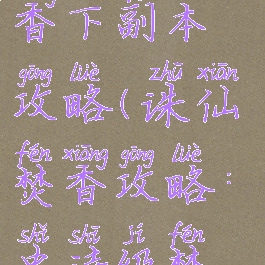 香下副本
gōng lüè zhū xiān
攻略(诛仙
fén xiāng gōng lüè
焚香攻略:
shǐ shī jí fén
史诗级焚